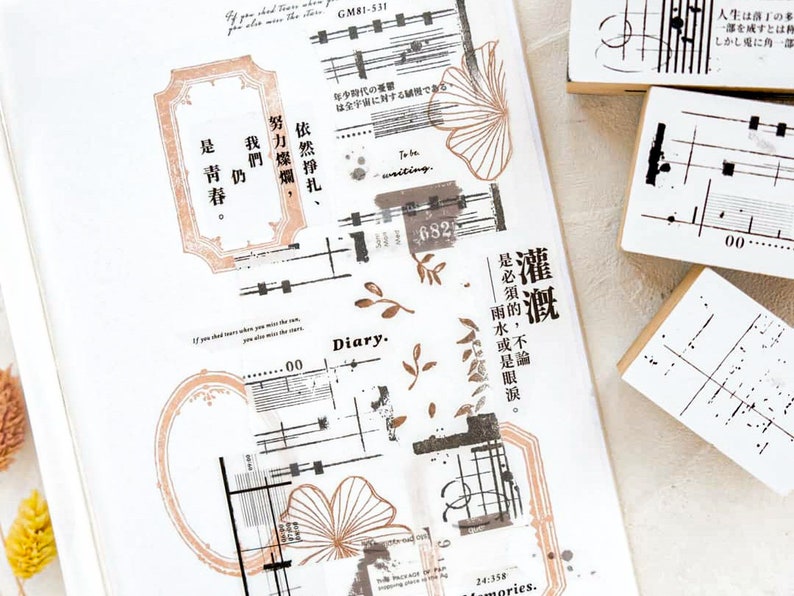 If you shed tears when you
you also miss the stars.
GM81-531
人生は落丁の多
一部を成すとは称
しかし兎に角一部
年少時代の憂鬱
は全宇宙に対する驕慢である。
依然掙扎、
努力燦爛，
我們
仍
是青春。
To be.
writing.
682
Sam
Mon
Med
00
灌溉
是必須的，不論
——雨水或是眼淚。
If you shed tears when you miss the sun,
you also miss the stars.
Diary.
00
09:00
THIS PACKAGE OF PAP
stopping place to the Ag
24:358
Memories.